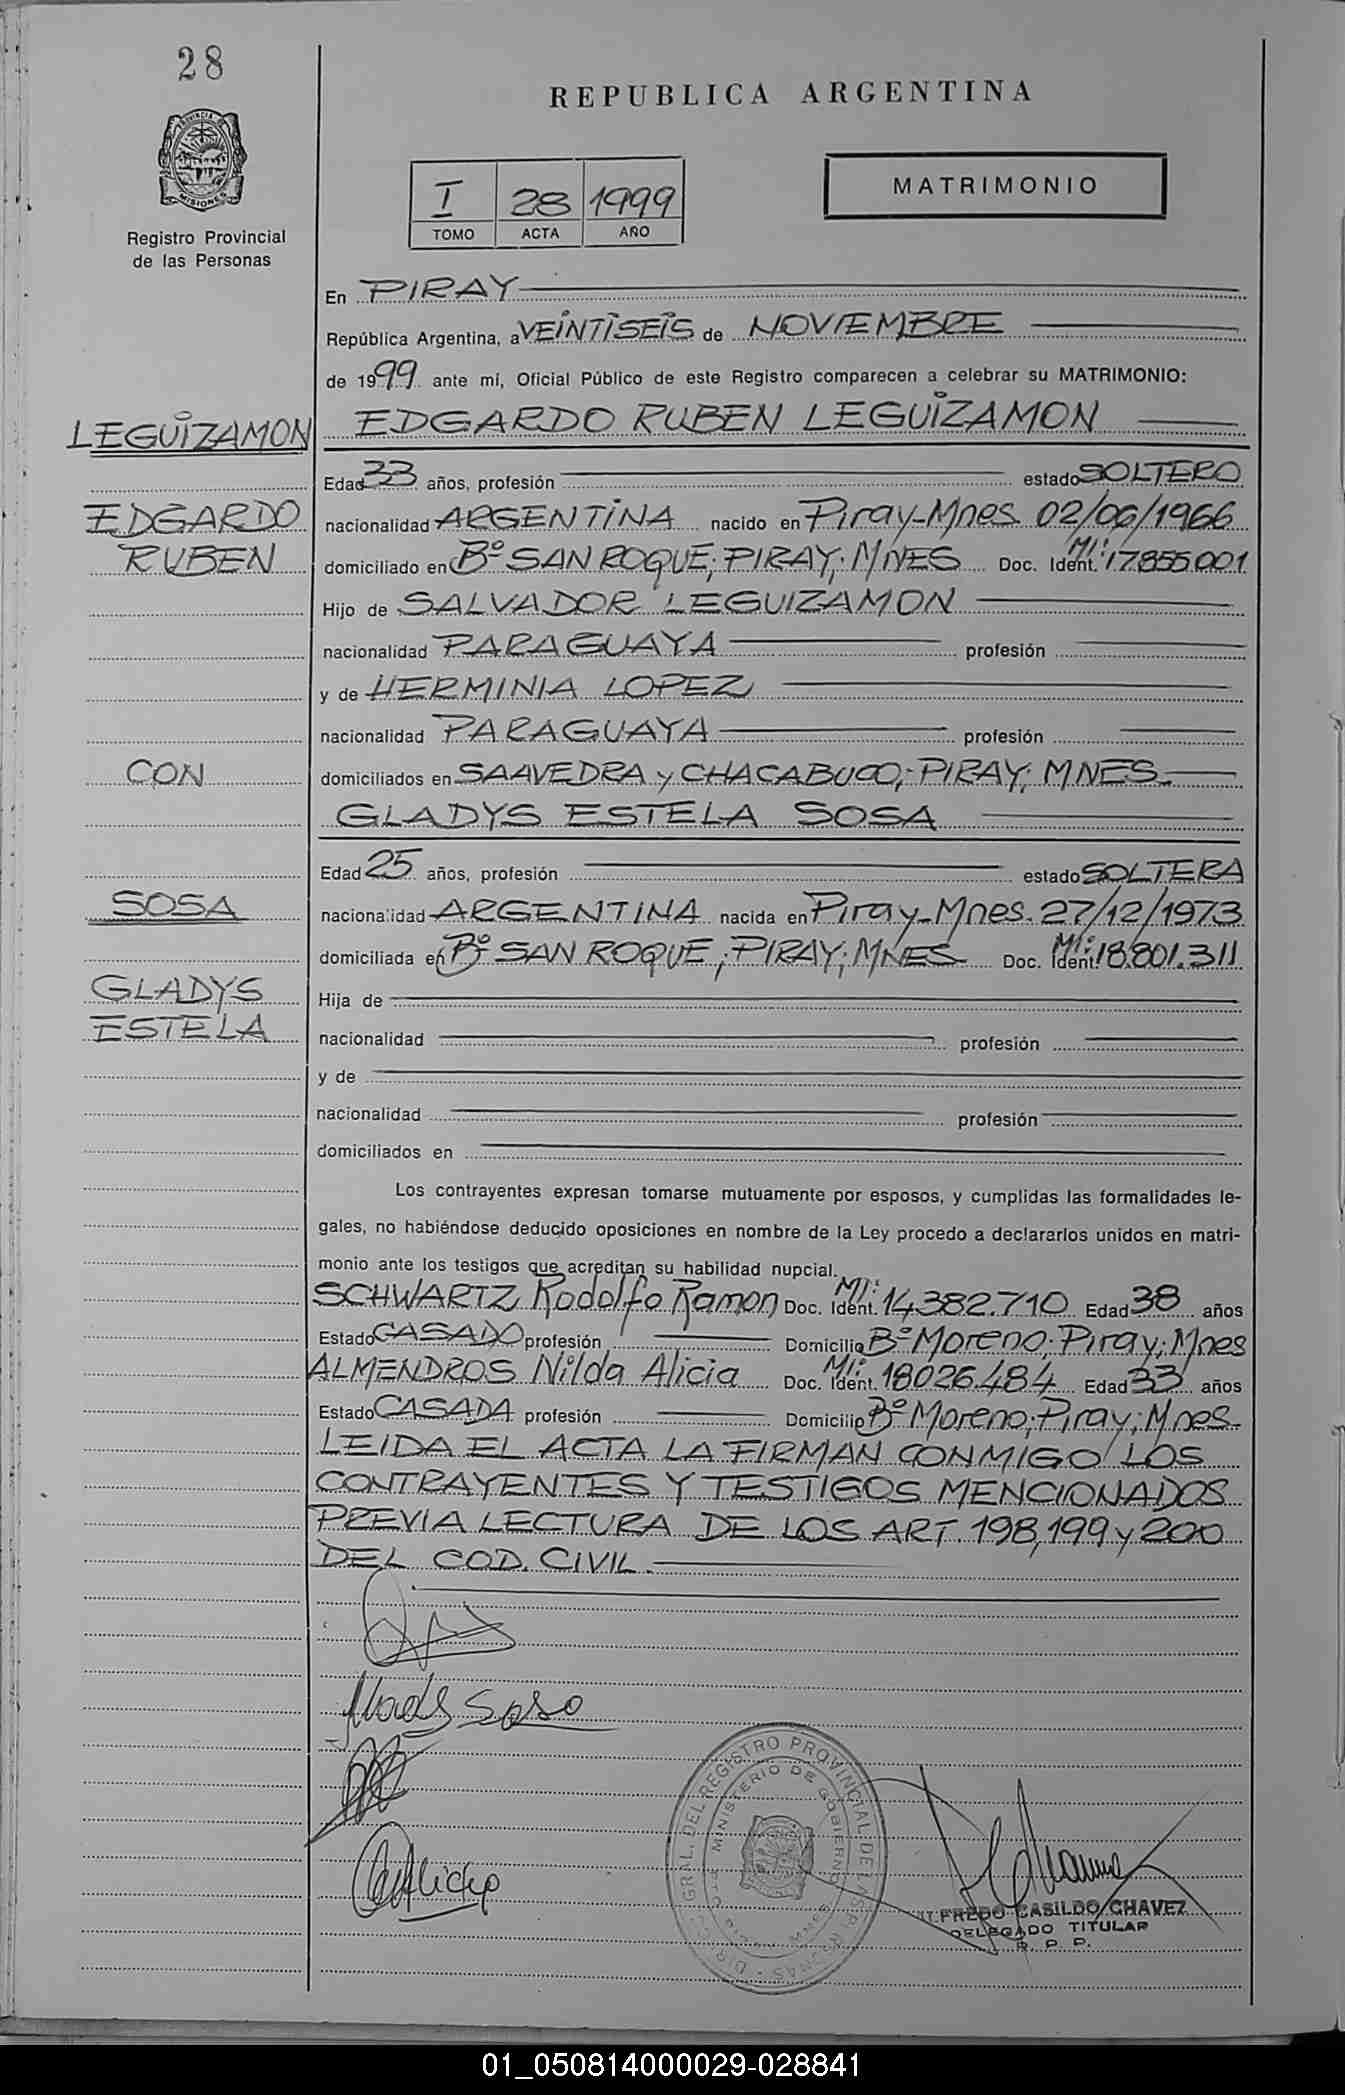 28
REPUBLICA ARGENTINA
PROVINCIA DE MISIONES
Registro Provincial
de las Personas
I 28 1999
TOMO ACTA AÑO
MATRIMONIO
En PIRAY
República Argentina, a VEINTISEIS de NOVIEMBRE
de 1999 ante mí, Oficial Público de este Registro comparecen a celebrar su MATRIMONIO:
LEGUIZAMON
EDGARDO RUBEN LEGUIZAMON
Edad 33 años, profesión estado SOLTERO
EDGARDO
nacionalidad ARGENTINA nacido en Piray-Mnes 02/06/1966
RUBEN
domiciliado en Bº SAN ROQUE; PIRAY; MNES Doc. Ident. MI: 17.855.001
Hijo de SALVADOR LEGUIZAMON
nacionalidad PARAGUAYA profesión
y de HERMINIA LOPEZ
nacionalidad PARAGUAYA profesión
CON
domiciliados en SAAVEDRA y CHACABUCO; PIRAY; MNES.
GLADYS ESTELA SOSA
Edad 25 años, profesión estado SOLTERA
SOSA
nacionalidad ARGENTINA nacida en Piray-Mnes. 27/12/1973
domiciliada en Bº SAN ROQUE; PIRAY; MNES Doc. Ident. MI: 18.801.311
GLADYS
Hija de
ESTELA
nacionalidad profesión
y de
nacionalidad profesión
domiciliados en
Los contrayentes expresan tomarse mutuamente por esposos, y cumplidas las formalidades le-
gales, no habiéndose deducido oposiciones en nombre de la Ley procedo a declararlos unidos en matri-
monio ante los testigos que acreditan su habilidad nupcial.
SCHWARTZ Rodolfo Ramon Doc. Ident. MI: 14.382.710 Edad 38 años
Estado CASADO profesión Domicilio Bº Moreno; Piray; Mnes
ALMENDROS Nilda Alicia Doc. Ident. MI: 18026.484 Edad 33 años
Estado CASADA profesión Domicilio Bº Moreno; Piray; Mnes.
LEIDA EL ACTA LA FIRMAN CONMIGO LOS
CONTRAYENTES Y TESTIGOS MENCIONADOS
PREVIA LECTURA DE LOS ART. 198, 199 y 200
DEL COD. CIVIL.
Gladys Sosa
DIREC. GRAL. DEL REGISTRO PROVINCIAL DE LAS PERSONAS
MINISTERIO DE GOBIERNO
ALFREDO CASILDO CHAVEZ
DELEGADO TITULAR
R. P. P.
01_050814000029-028841